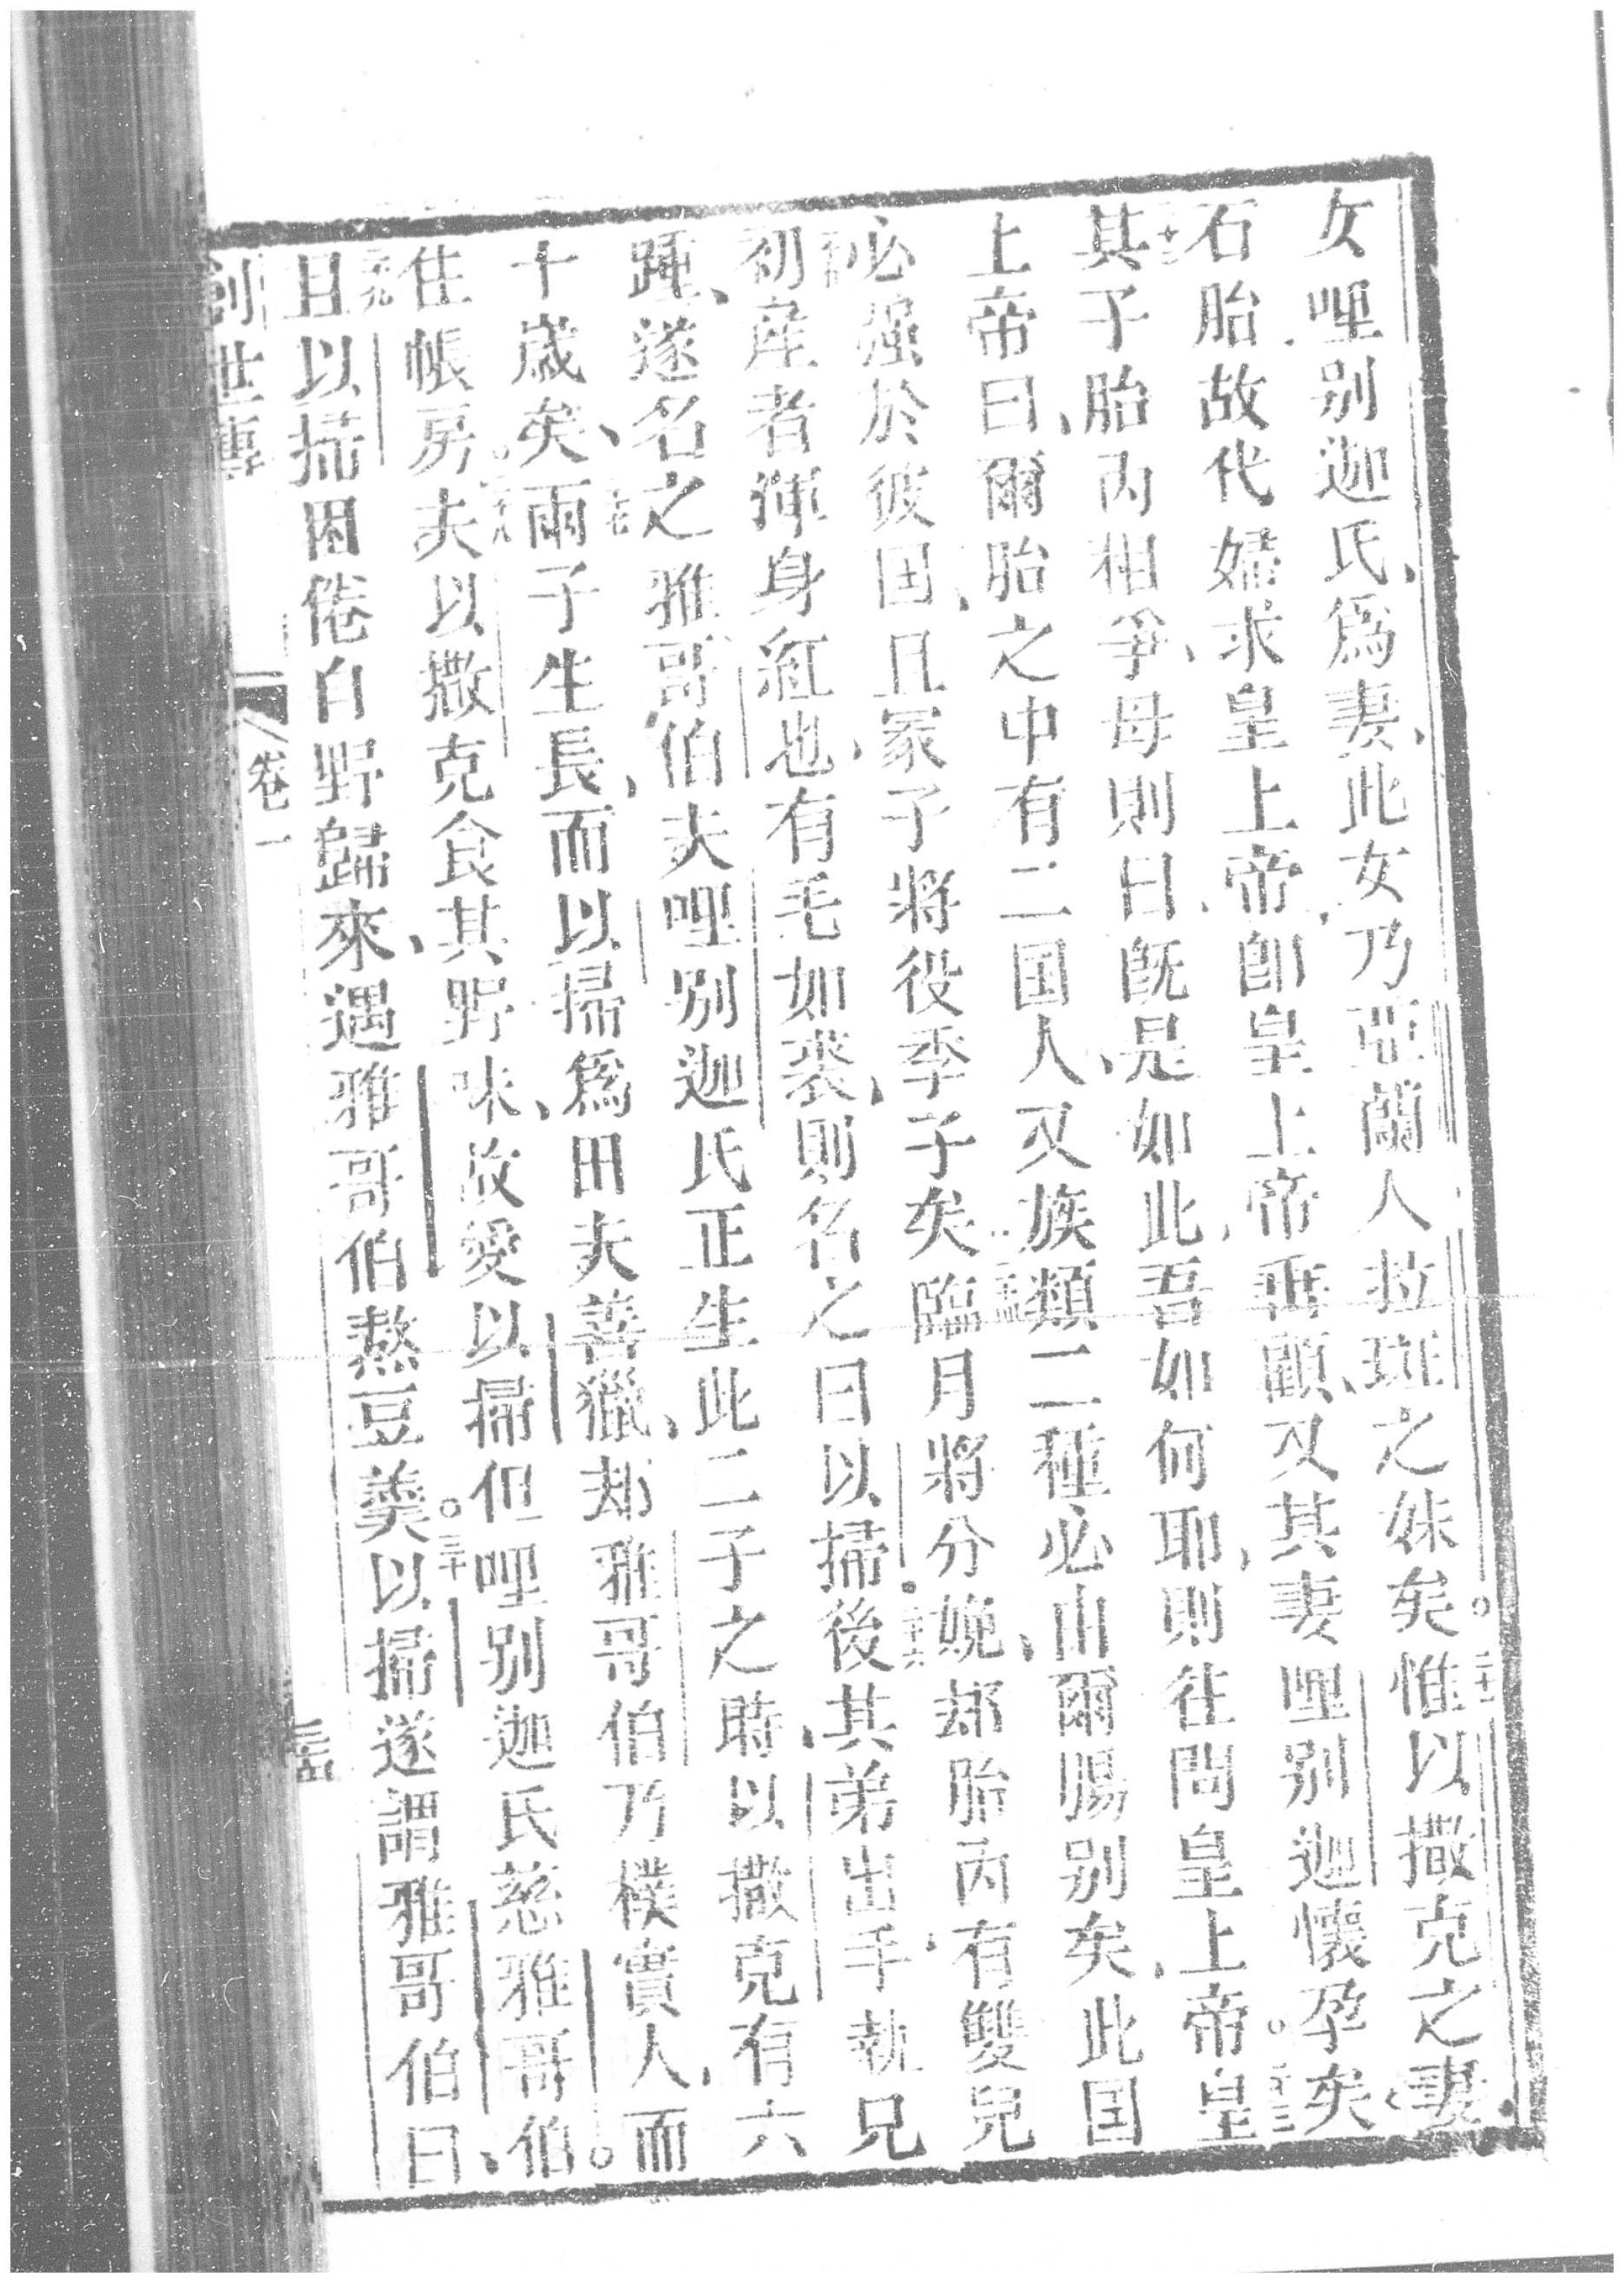 女哩别迦氏、爲妻、此女乃亞蘭人拉班之妹矣。惟以撒克之妻
石胎、故代婦求皇上帝、卽皇上帝垂顧、又其妻哩别迦懷孕矣。
其子胎內相爭、母則曰、旣是如此、吾如何耶、則往問皇上帝、皇
上帝曰、爾胎之中有二国人、又族類二種必由爾腸别矣、此国
必强於彼国、且冢子將役季子矣。臨月將分娩、却胎內有雙兒、
初產者渾身紅也、有毛如裘、則名之曰以掃。後其弟出手執兄
踵、遂名之雅哥伯、夫哩别迦氏正生此二子之時、以撒克有六
十歲矣。兩子生長、而以掃爲田夫善獵、却雅哥伯乃樸實人、而
住帳房。夫以撒克食其野味、故愛以掃、但哩别迦氏慈雅哥伯。
且以掃困倦自野歸來、遇雅哥伯熬豆羹。三十以掃遂謂雅哥伯曰、
創世傳 卷一